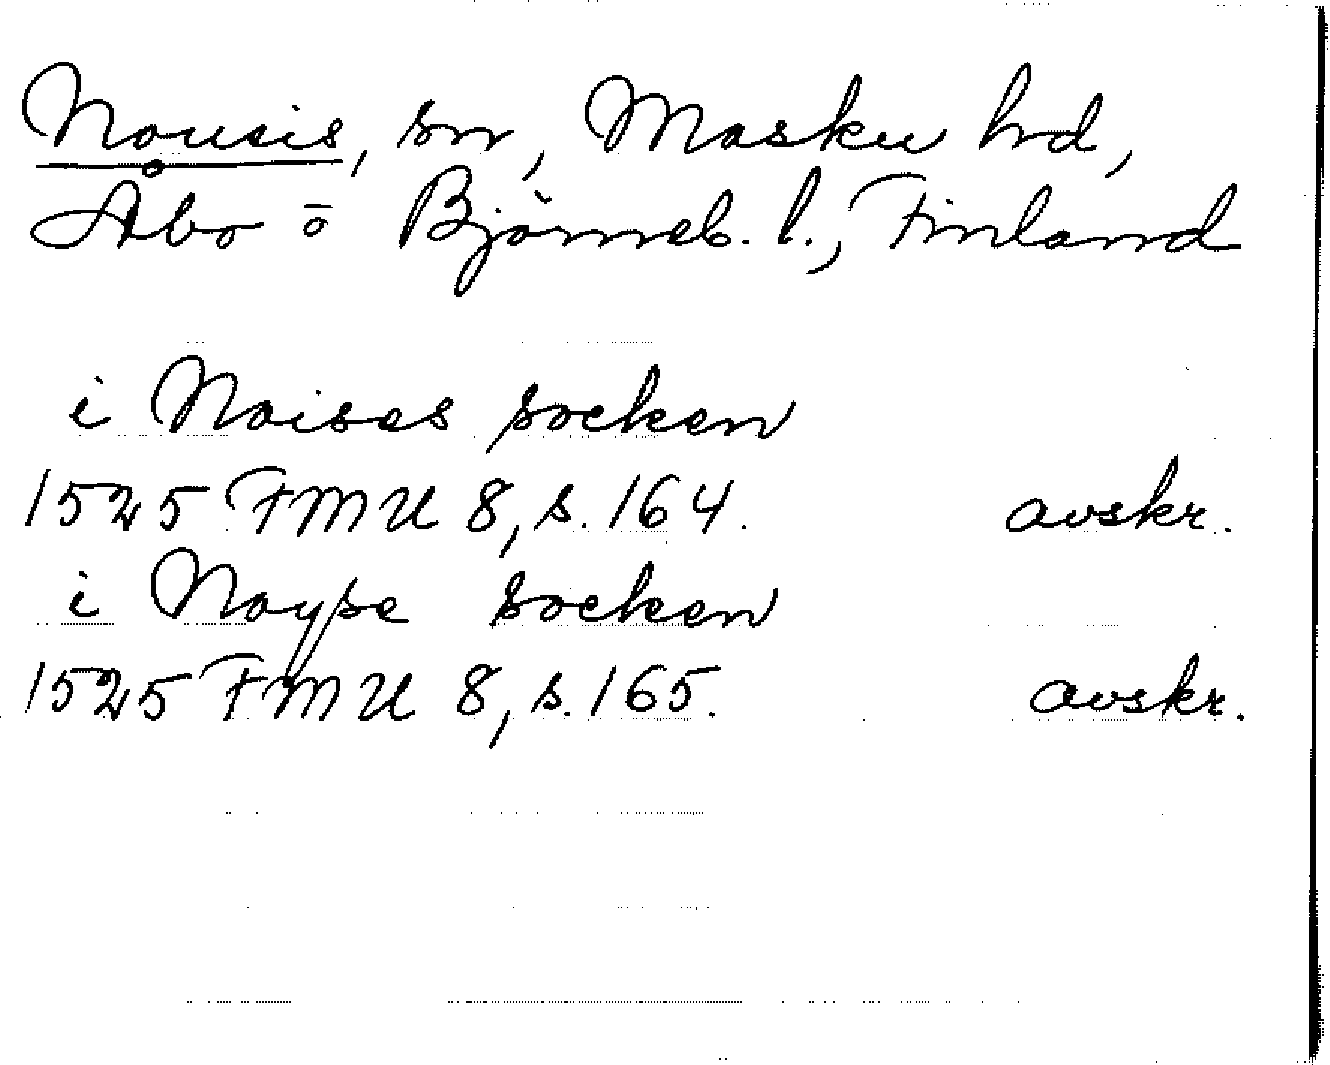 Nousis, sn, Masku hd,
Åbo ō Björneb. l., Finland
i Noises socken
1525 FMU 8, s. 164. avskr.
i Noyse socken
1525 FMU 8, s. 165. avskr.